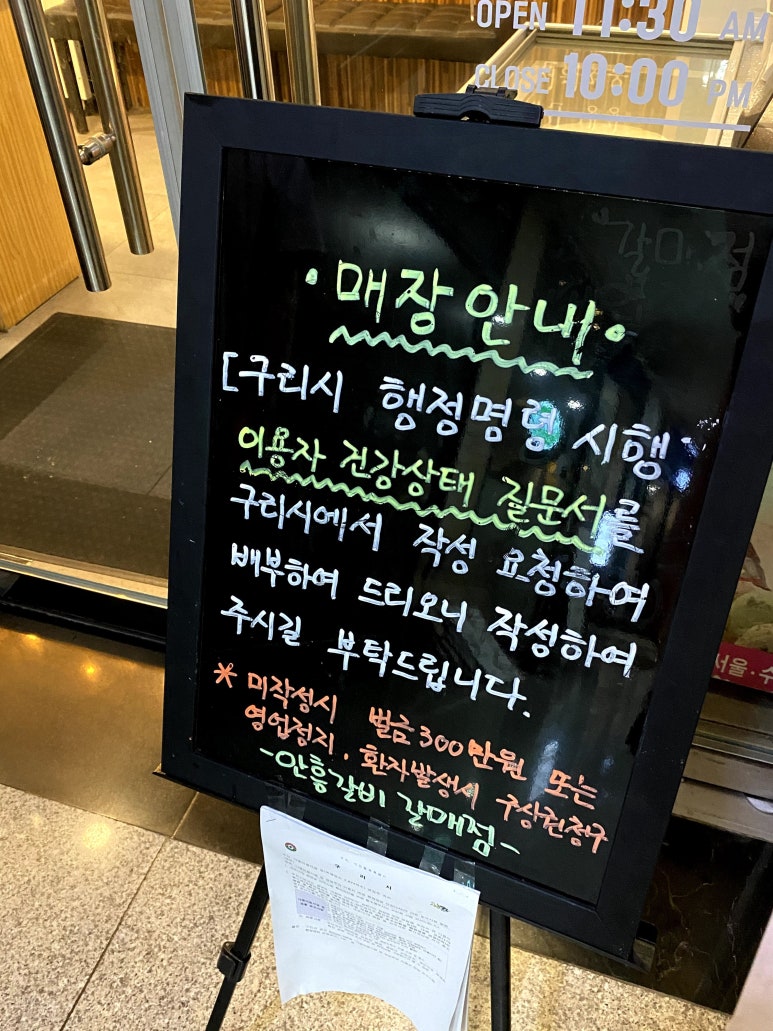 OPEN 11:30 AM
CLOSE 10:00 PM
갈매점
·매장안내·
[구리시 행정명령 시행
이용자 건강상태 질문서를
구리시에서 작성 요청하여
배부하여 드리오니 작성하여
주시길 부탁드립니다.
* 미작성시 벌금300만원 또는
영업정지. 환자발생시 구상권청구
-안흥갈비 갈매점-
구 리 시
서울·수